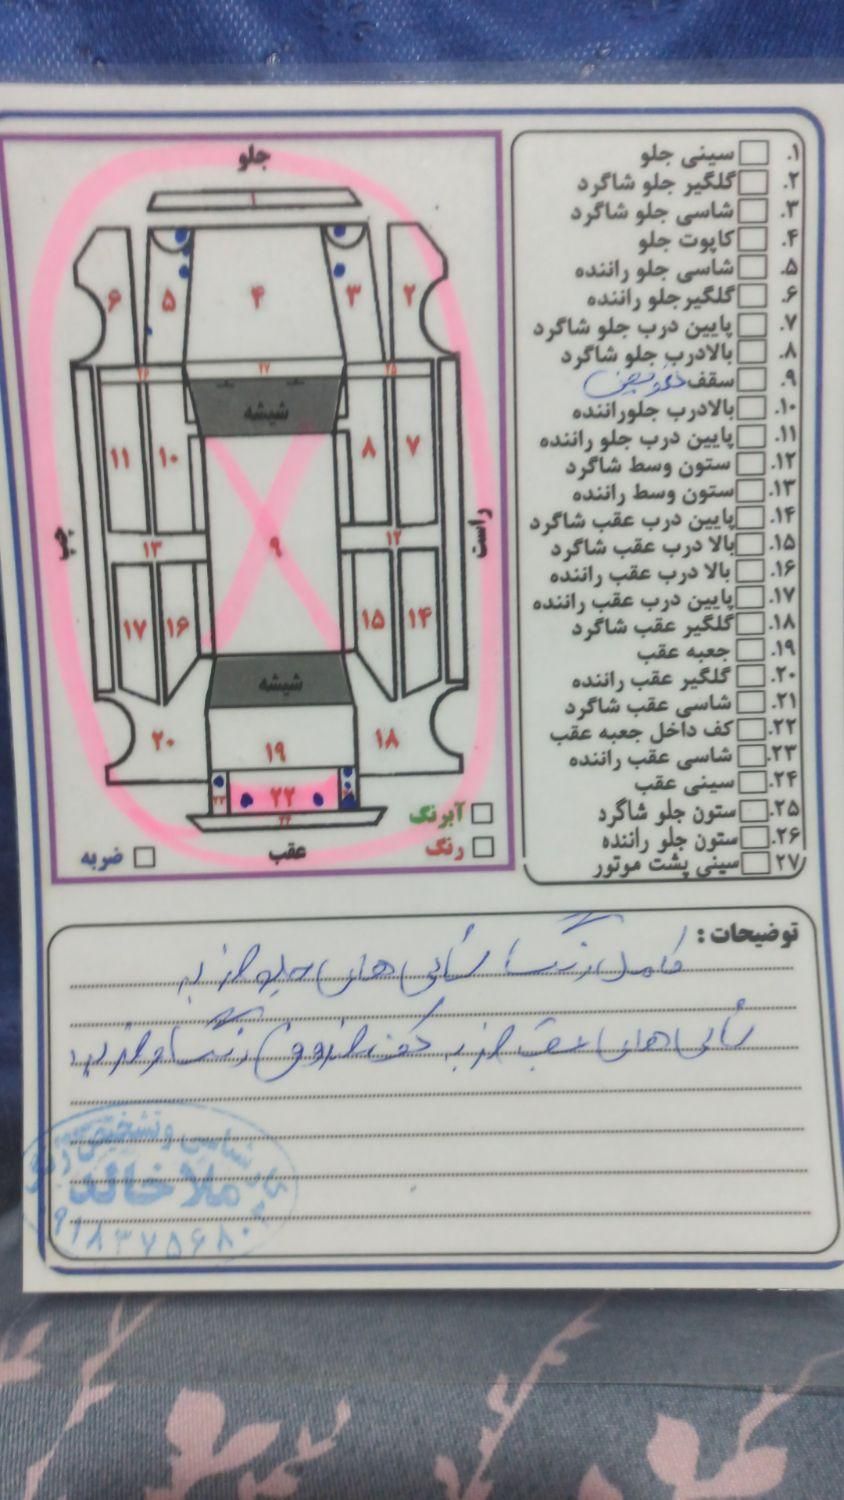 جلو
۱
۶
۵
۴
۳
۲
۲۶
۲۷
۲۵
شیشه
۱۱
۱۰
۸
۷
چپ
راست
۹
۱۳
۱۲
۱۷
۱۶
۱۵
۱۴
شیشه
۲۰
۱۹
۱۸
۲۳
۲۲
۲۴
آبرنگ
رنگ
ضربه
عقب
۱. سینی جلو
۲. گلگیر جلو شاگرد
۳. شاسی جلو شاگرد
۴. کاپوت جلو
۵. شاسی جلو راننده
۶. گلگیر جلو راننده
۷. پایین درب جلو شاگرد
۸. بالا درب جلو شاگرد
۹. سقف تعویض
۱۰. بالا درب جلو راننده
۱۱. پایین درب جلو راننده
۱۲. ستون وسط شاگرد
۱۳. ستون وسط راننده
۱۴. پایین درب عقب شاگرد
۱۵. بالا درب عقب شاگرد
۱۶. بالا درب عقب راننده
۱۷. پایین درب عقب راننده
۱۸. گلگیر عقب شاگرد
۱۹. جعبه عقب
۲۰. گلگیر عقب راننده
۲۱. شاسی عقب شاگرد
۲۲. کف داخل جعبه عقب
۲۳. شاسی عقب راننده
۲۴. سینی عقب
۲۵. ستون جلو شاگرد
۲۶. ستون جلو راننده
۲۷. سینی پشت موتور
توضیحات :
کامل رنگ شاسی های جلو ضربه
شاسی های عقب ضربه کف صندوق رنگ و ضربه
کارشناسی و تشخیص رنگ
ملا خالد